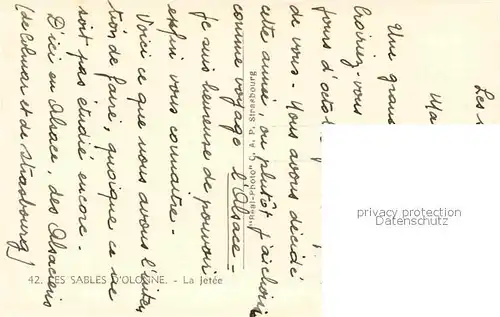 Les
Ma
Une gran
Croiriez-vous
jours d'
de vous - Nous avons décidé
cette année, ou plutôt j'ai choisi
comme voyage l'Alsace -
Je suis heureuse de pouvoir
enfin vous connaitre -
Voici ce que nous avons l'inten
tion de faire, quoique ce ne
soit pas étudié encore.
D'ici en Alsace, des Alsaciens
(de Colmar et de Strasbourg)
"Real-Photo" C. A. P. Strasbourg
42. LES SABLES D'OLONNE. - La jetée
privacy protection
Datenschutz